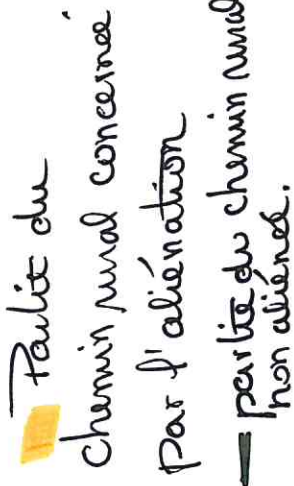 Partie du
chemin rural concerné
par l'aliénation
partie du chemin rural
non aliéné.